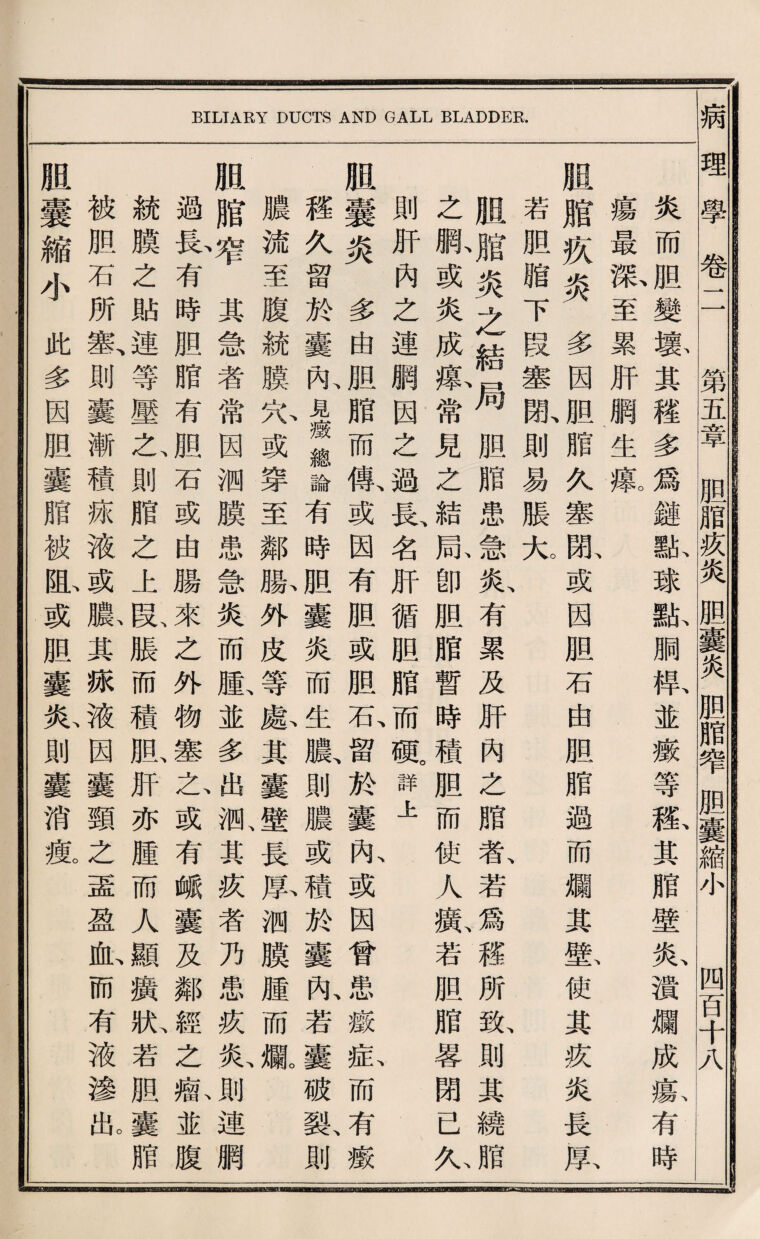 BILIARY DUCTS AND GALL BLADDER.
病理學 卷二 第五章 胆脂疚炎 胆囊炎 胆脂窄 胆囊縮小 四百十八
炎而胆變壞、其䅜多爲鏈點、球點、胴桿、並癥等䅜、其脂壁炎、潰爛成瘍、有時
瘍最深、至累肝膶生㿈。
胆脂疚炎 多因胆脂久塞閉、或因胆石由胆脂過而爛其壁、使其疚炎長厚、
若胆脂下段塞閉、則易脹大。
胆脂炎之結局 胆脂患急炎、有累及肝內之脂者、若爲䅜所致、則其繞脂
之膶、或炎成㿈、常見之結局、卽胆脂暫時積胆而使人癀、若胆脂畧閉已久、
則肝內之連膶因之過長、名肝循胆脂而硬。詳上
胆囊炎 多由胆脂而傳、或因有胆或胆石、留於囊內、或因曾患癥症、而有癥
䅜久留於囊內、見癥總論 有時胆囊炎而生膿、則膿或積於囊內、若囊破裂、則
膿流至腹統膜穴、或穿至鄰腸、外皮等處、其囊壁長厚、泗膜腫而爛。
胆脂窄 其急者常因泗膜患急炎而腫、並多出泗、其疚者乃患疚炎、則連膶
過長、有時胆脂有胆石或由腸來之外物塞之、或有衇囊及鄰經之瘤、並腹
統膜之貼連等壓之、則脂之上段、脹而積胆、肝亦腫而人顯癀狀、若胆囊脂
被胆石所塞、則囊漸積㳄液或膿、其㳄液因囊頸之盃盈血、而有液滲出。
胆囊縮小 此多因胆囊脂被阻、或胆囊炎、則囊消瘦。